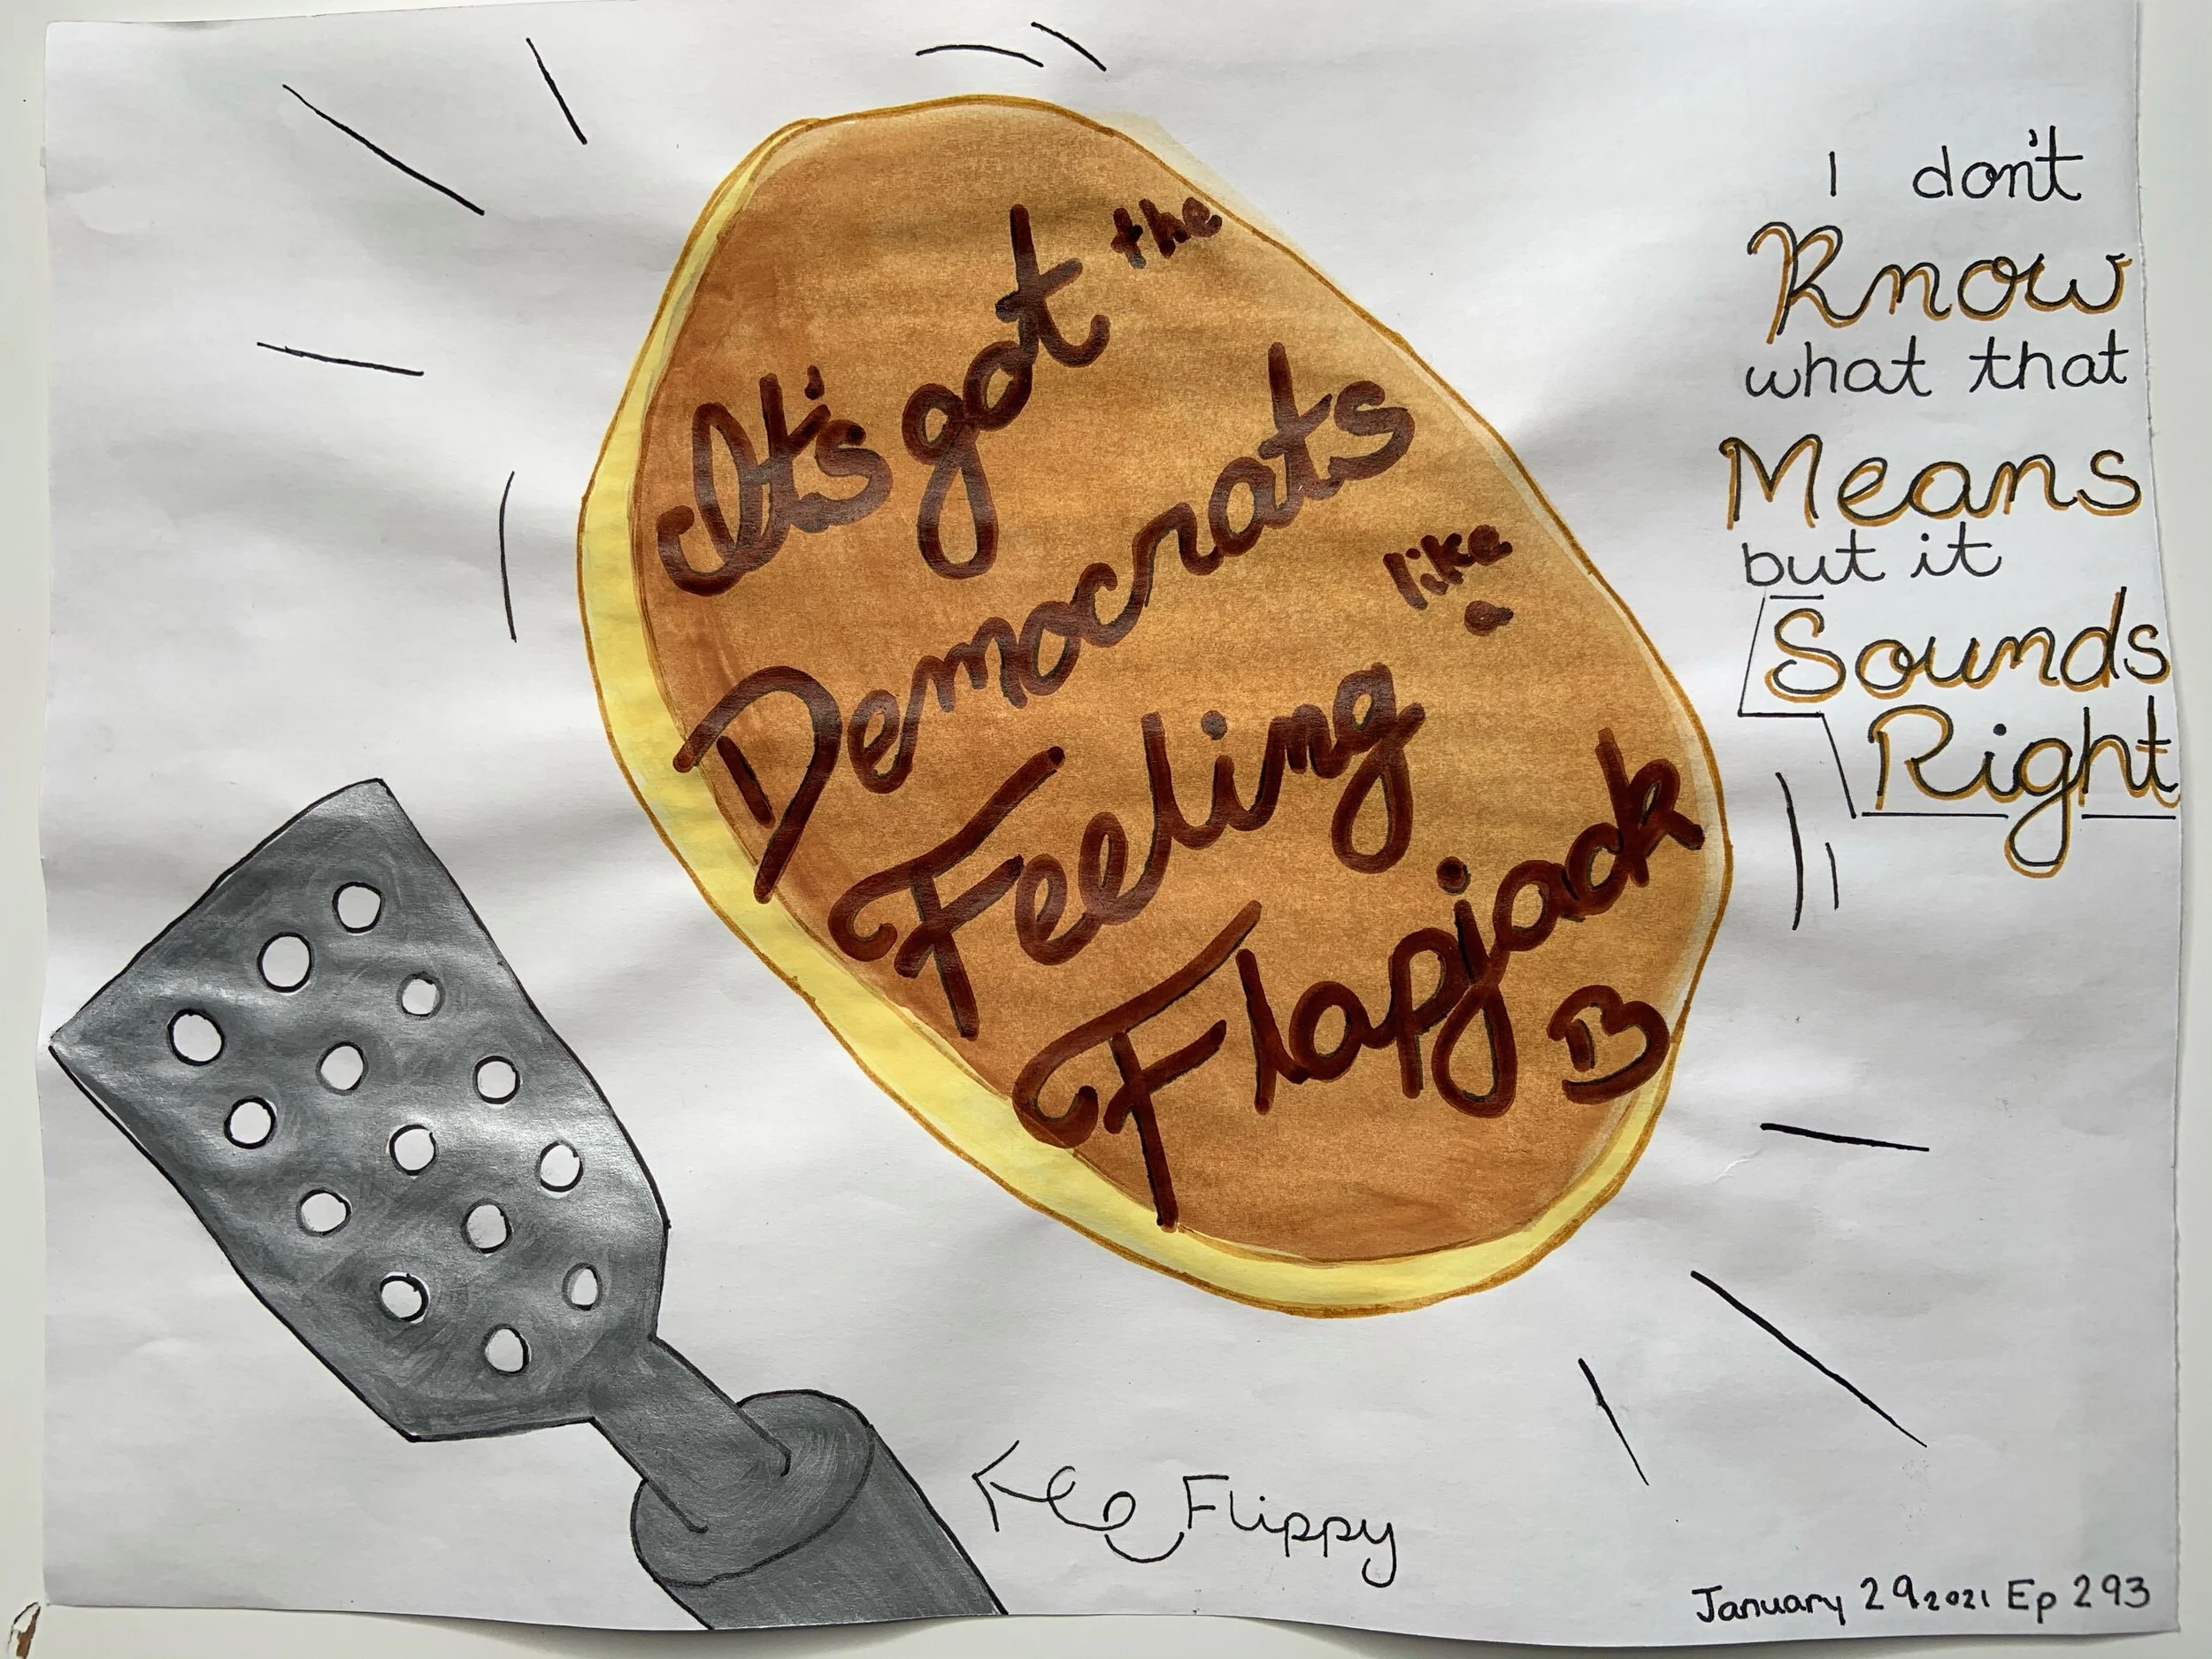 It's got the
Democrats
Feeling like a
Flapjack
B
I don't
Know
what that
Means
but it
Sounds
Right
Flippy
January 29 2021 Ep 293